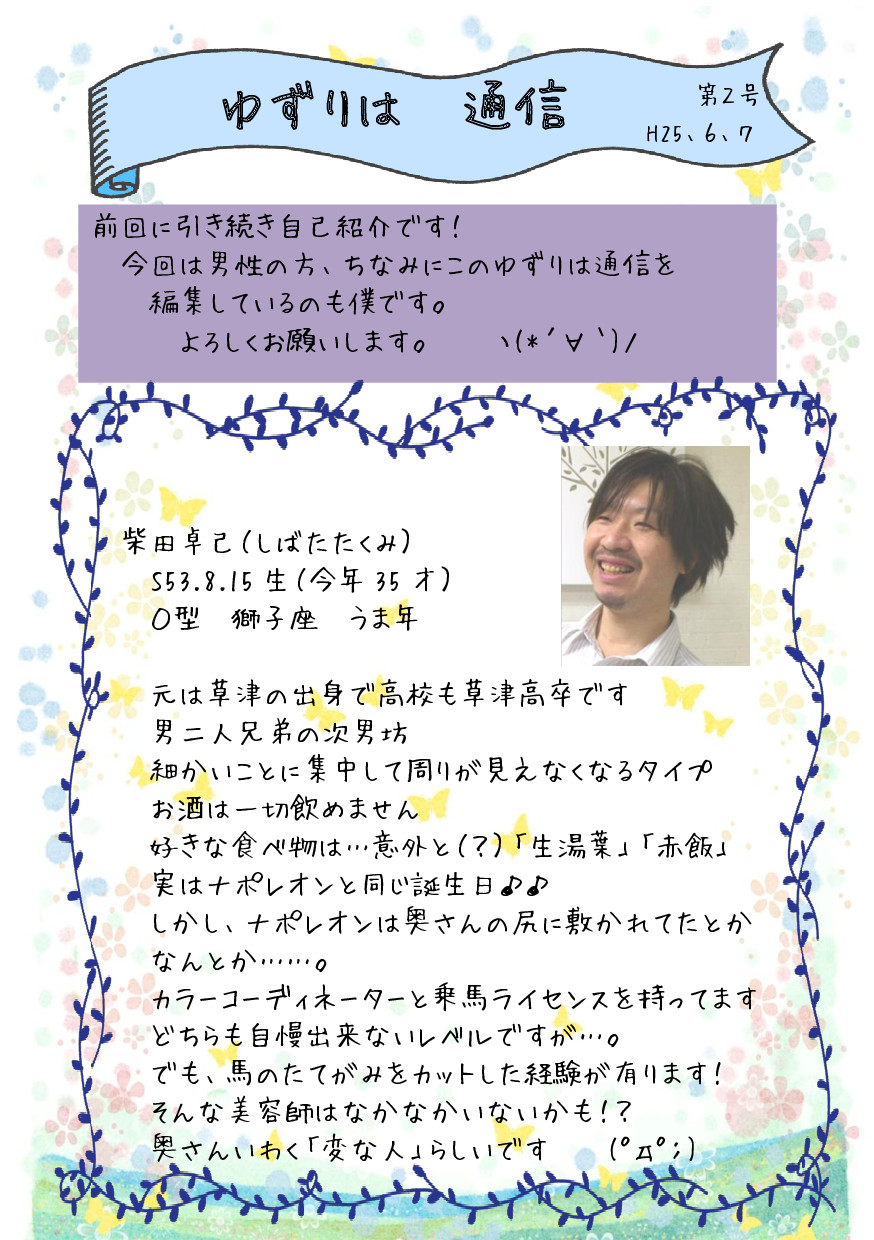 ゆずりは 通信
第2号
H25、6、7
前回に引き続き自己紹介です！
今回は男性の方、ちなみにこのゆずりは通信を
編集しているのも僕です。
よろしくお願いします。 ヽ(*´∀｀)/
柴田卓己(しばたたくみ)
S53.8.15生(今年35才)
O型 獅子座 うま年
元は草津の出身で高校も草津高卒です
男二人兄弟の次男坊
細かいことに集中して周りが見えなくなるタイプ
お酒は一切飲めません
好きな食べ物は…意外と(？)「生湯葉」「赤飯」
実はナポレオンと同じ誕生日♪♪
しかし、ナポレオンは奥さんの尻に敷かれてたとか
なんとか……。
カラーコーディネーターと乗馬ライセンスを持ってます
どちらも自慢出来ないレベルですが…。
でも、馬のたてがみをカットした経験が有ります！
そんな美容師はなかなかいないかも！？
奥さんいわく「変な人」らしいです (ﾟДﾟ;)